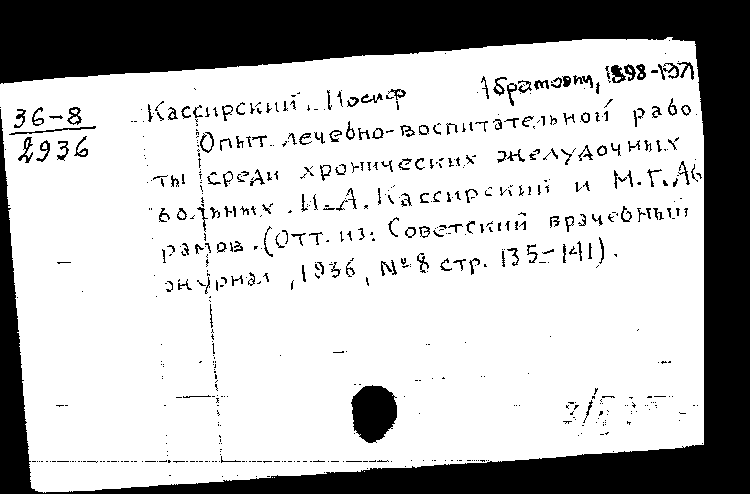 36-8
2936
Кассирский, Иосиф Абрамович, 1898-1971
Опыт лечебно-воспитательной рабо
ты среди хронических желудочных
больных. И.А. Кассирский и М.Г. Аб
рамов. (Отт. из: Советский врачебный
журнал, 1936, №8 стр. 135-141).